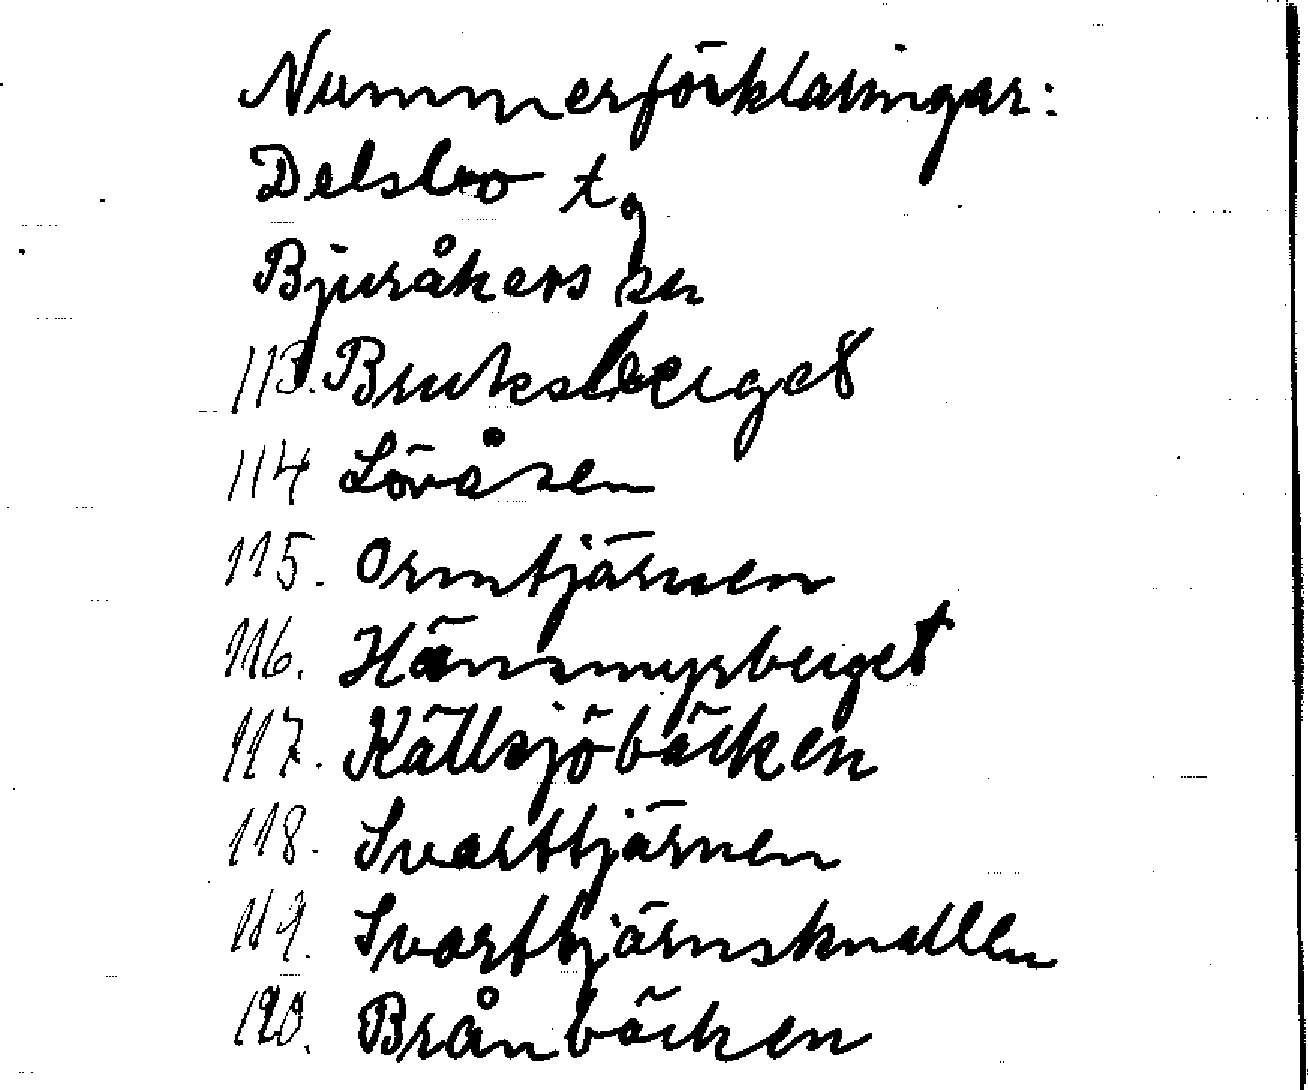 Nummerförklaringar:
Delsbo t.
Bjuråkers sn
113. Bruksberget
114 Lövåsen
115. Ormtjärnen
116. Hänsmyrberget
117. Källsjöbäcken
118. Svarttjärnen
119. Svarttjärnsknallen
120. Brånbäcken